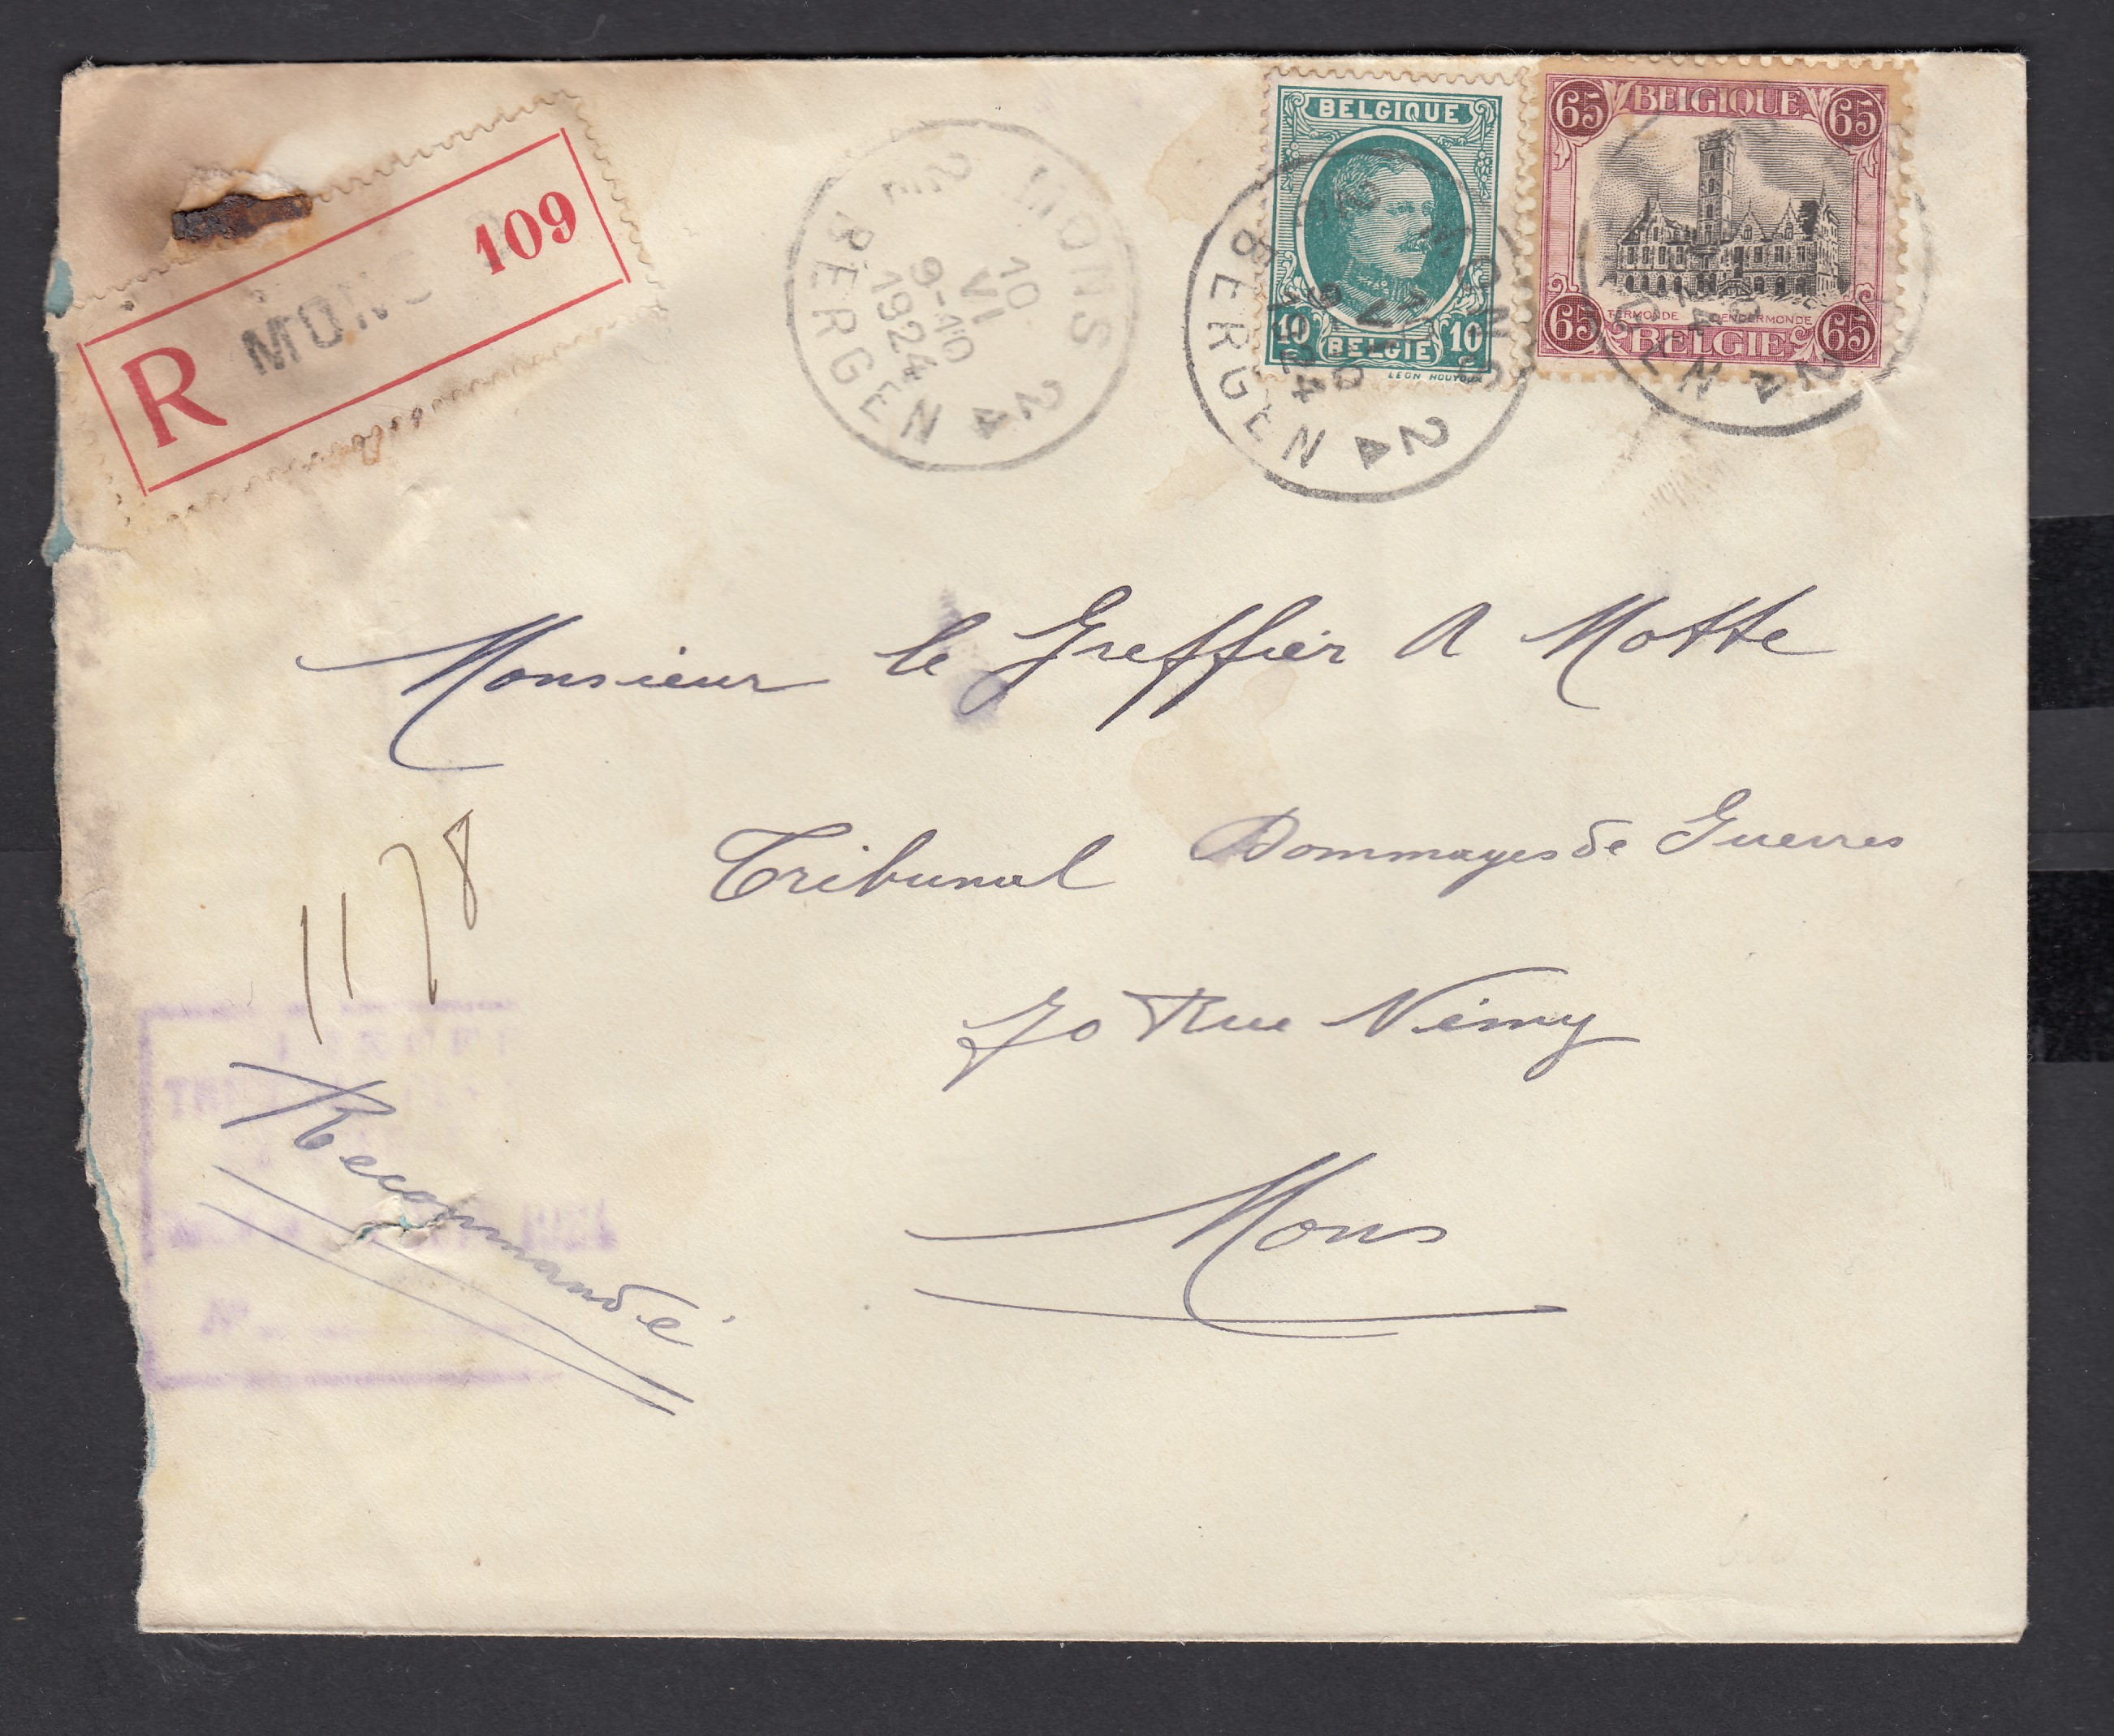 R MONS 109
MONS 2A
10
VI
9-10
1924
BERGEN 2E
BELGIQUE
10 10
BELGIË
LEON HOUYOUX
MONS 2A
1924
BERGEN 2E
65 BELGIQUE 65
TERMONDE DENDERMONDE
65 BELGIË 65
2A
Monsieur le Greffier A Motte
Tribunal Dommages de Guerres
70 Rue Nimy
Mons
1178
Recommandé
1924
N°